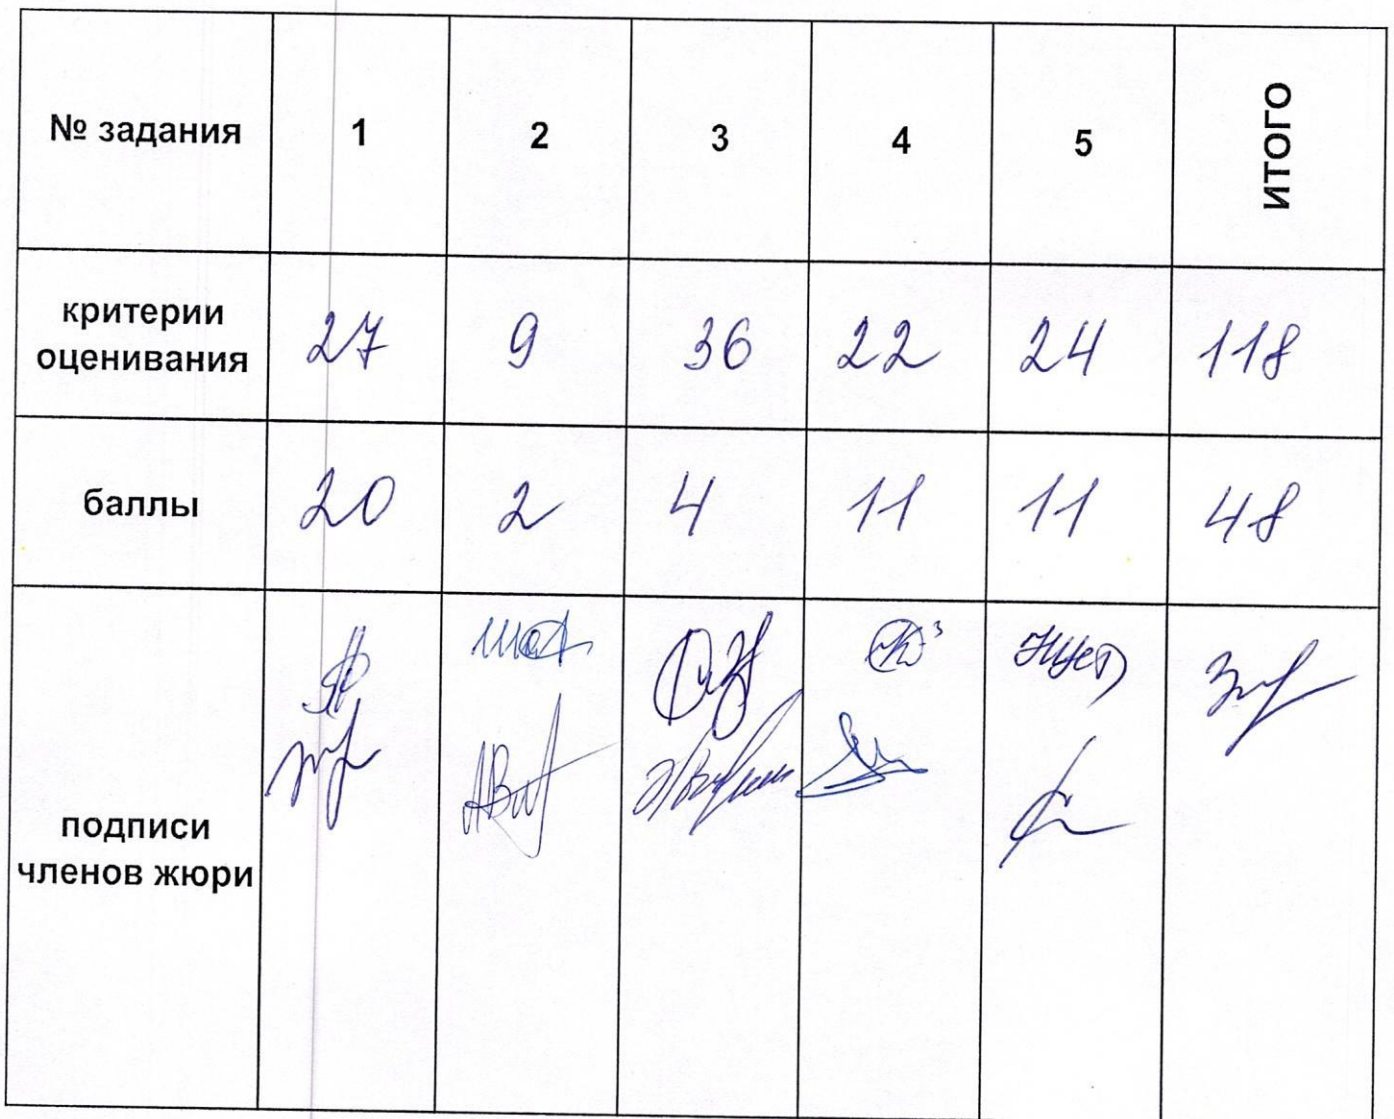 № задания 1 2 3 4 5 ИТОГО
критерии
оценивания 27 9 36 22 24 118
баллы 20 2 4 11 11 48
подписи
членов жюри